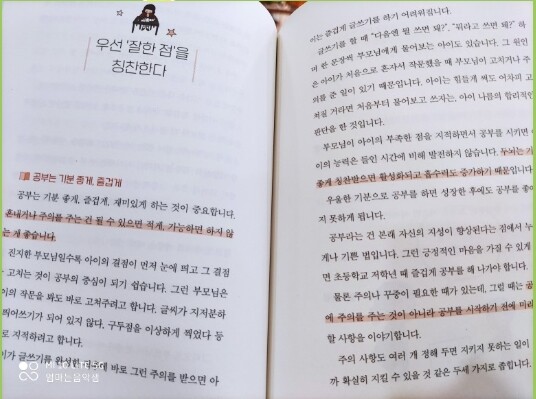 우선 '잘한 점'을
칭찬한다
공부는 기분 좋게, 즐겁게
공부는 기분 좋게, 즐겁게, 재미있게 하는 것이 중요합니다.
혼내거나 주의를 주는 건 될 수 있으면 적게, 가능하면 하지 않
는 게 좋습니다.
진지한 부모님일수록 아이의 결점이 먼저 눈에 띄고 그 결점
고치는 것이 공부의 중심이 되기 쉽습니다. 그런 부모님은
이의 작문을 봐도 바로 고쳐주려고 합니다. 글씨가 지저분하
띄어쓰기가 되어 있지 않다, 구두점을 이상하게 찍었다 등
로 지적하려고 합니다.
이가 글쓰기를 완성한 데 바로 그런 주의를 받으면 아
이는 즐겁게 글쓰기를 하기 어려워집니다.
글쓰기를 할 때 "다음엔 뭘 쓰면 돼?", "뭐라고 쓰면 돼?" 하
며 한 문장씩 부모님에게 물어보는 아이도 있습니다. 그 원인
은 아이가 처음으로 혼자서 작문했을 때 부모님이 고치거나 주
의를 준 일이 있기 때문입니다. 아이는 힘들게 써도 어차피 고
쳐질 거라면 처음부터 물어보고 쓰자는, 아이 나름의 합리적인
판단을 한 것입니다.
부모님이 아이의 부족한 점을 지적하면서 공부를 시키면
이의 능력은 들인 시간에 비해 발전하지 않습니다. 두뇌는 기
좋게 칭찬받으면 활성화되고 흡수력도 증가하기 때문입니다.
우울한 기분으로 공부를 하면 성장한 후에도 공부를 좋아
지 못하게 됩니다.
공부라는 건 본래 자신의 지성이 향상된다는 점에서 누
나 기쁜 법입니다. 그런 긍정적인 마음을 가질 수 있게
면 초등학교 저학년 때 즐겁게 공부를 해 나가야 합니다.
물론 주의나 꾸중이 필요한 때가 있는데, 그럴 때는
에 주의를 주는 것이 아니라 공부를 시작하기 전에 미리
할 사항을 이야기합니다.
주의 사항도 여러 개 정해 두면 지키지 못하는 일이
까 확실히 지킬 수 있을 것 같은 두세 가지로 좁힙니다.
엄마는음악쌤